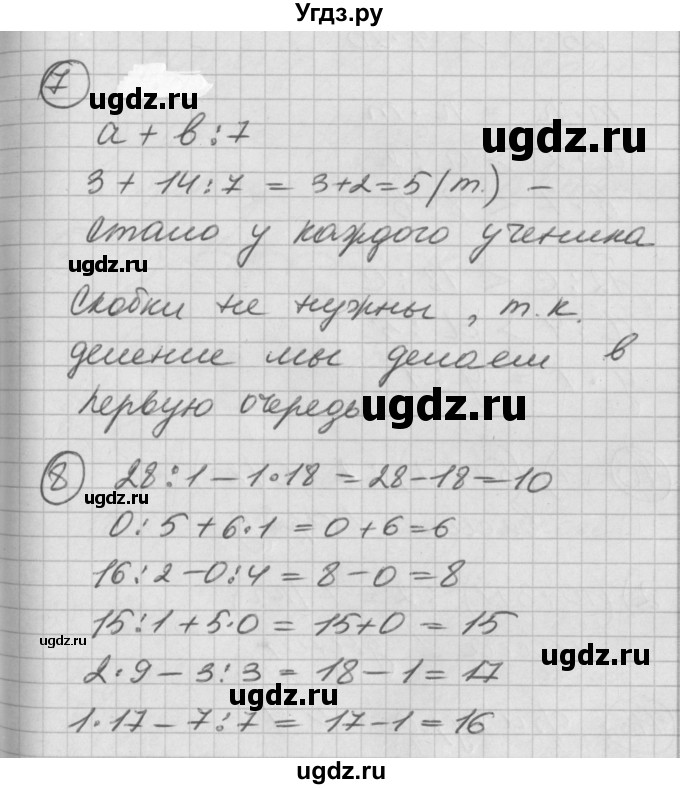 Угдз.ру
7
ugdz.ru
а + в : 7
ugdz.ru
3 + 14 : 7 = 3+2=5(т.) –
Стало у каждого ученика
ugdz.ru
Скобки не нужны, т.к.
деление мы делаем в
первую очередь
ugdz.ru
8 28:1 – 1·18 = 28–18=10
ugdz.ru
0:5+6·1 = 0+6=6
16:2–0:4 = 8–0=8
15:1+5·0 = 15+0 = 15
ugdz.ru
ugdz.ru
2·9 – 3:3 = 18–1=17
ugdz.ru
1·17 – 7:7 = 17–1=16
ugdz.ru